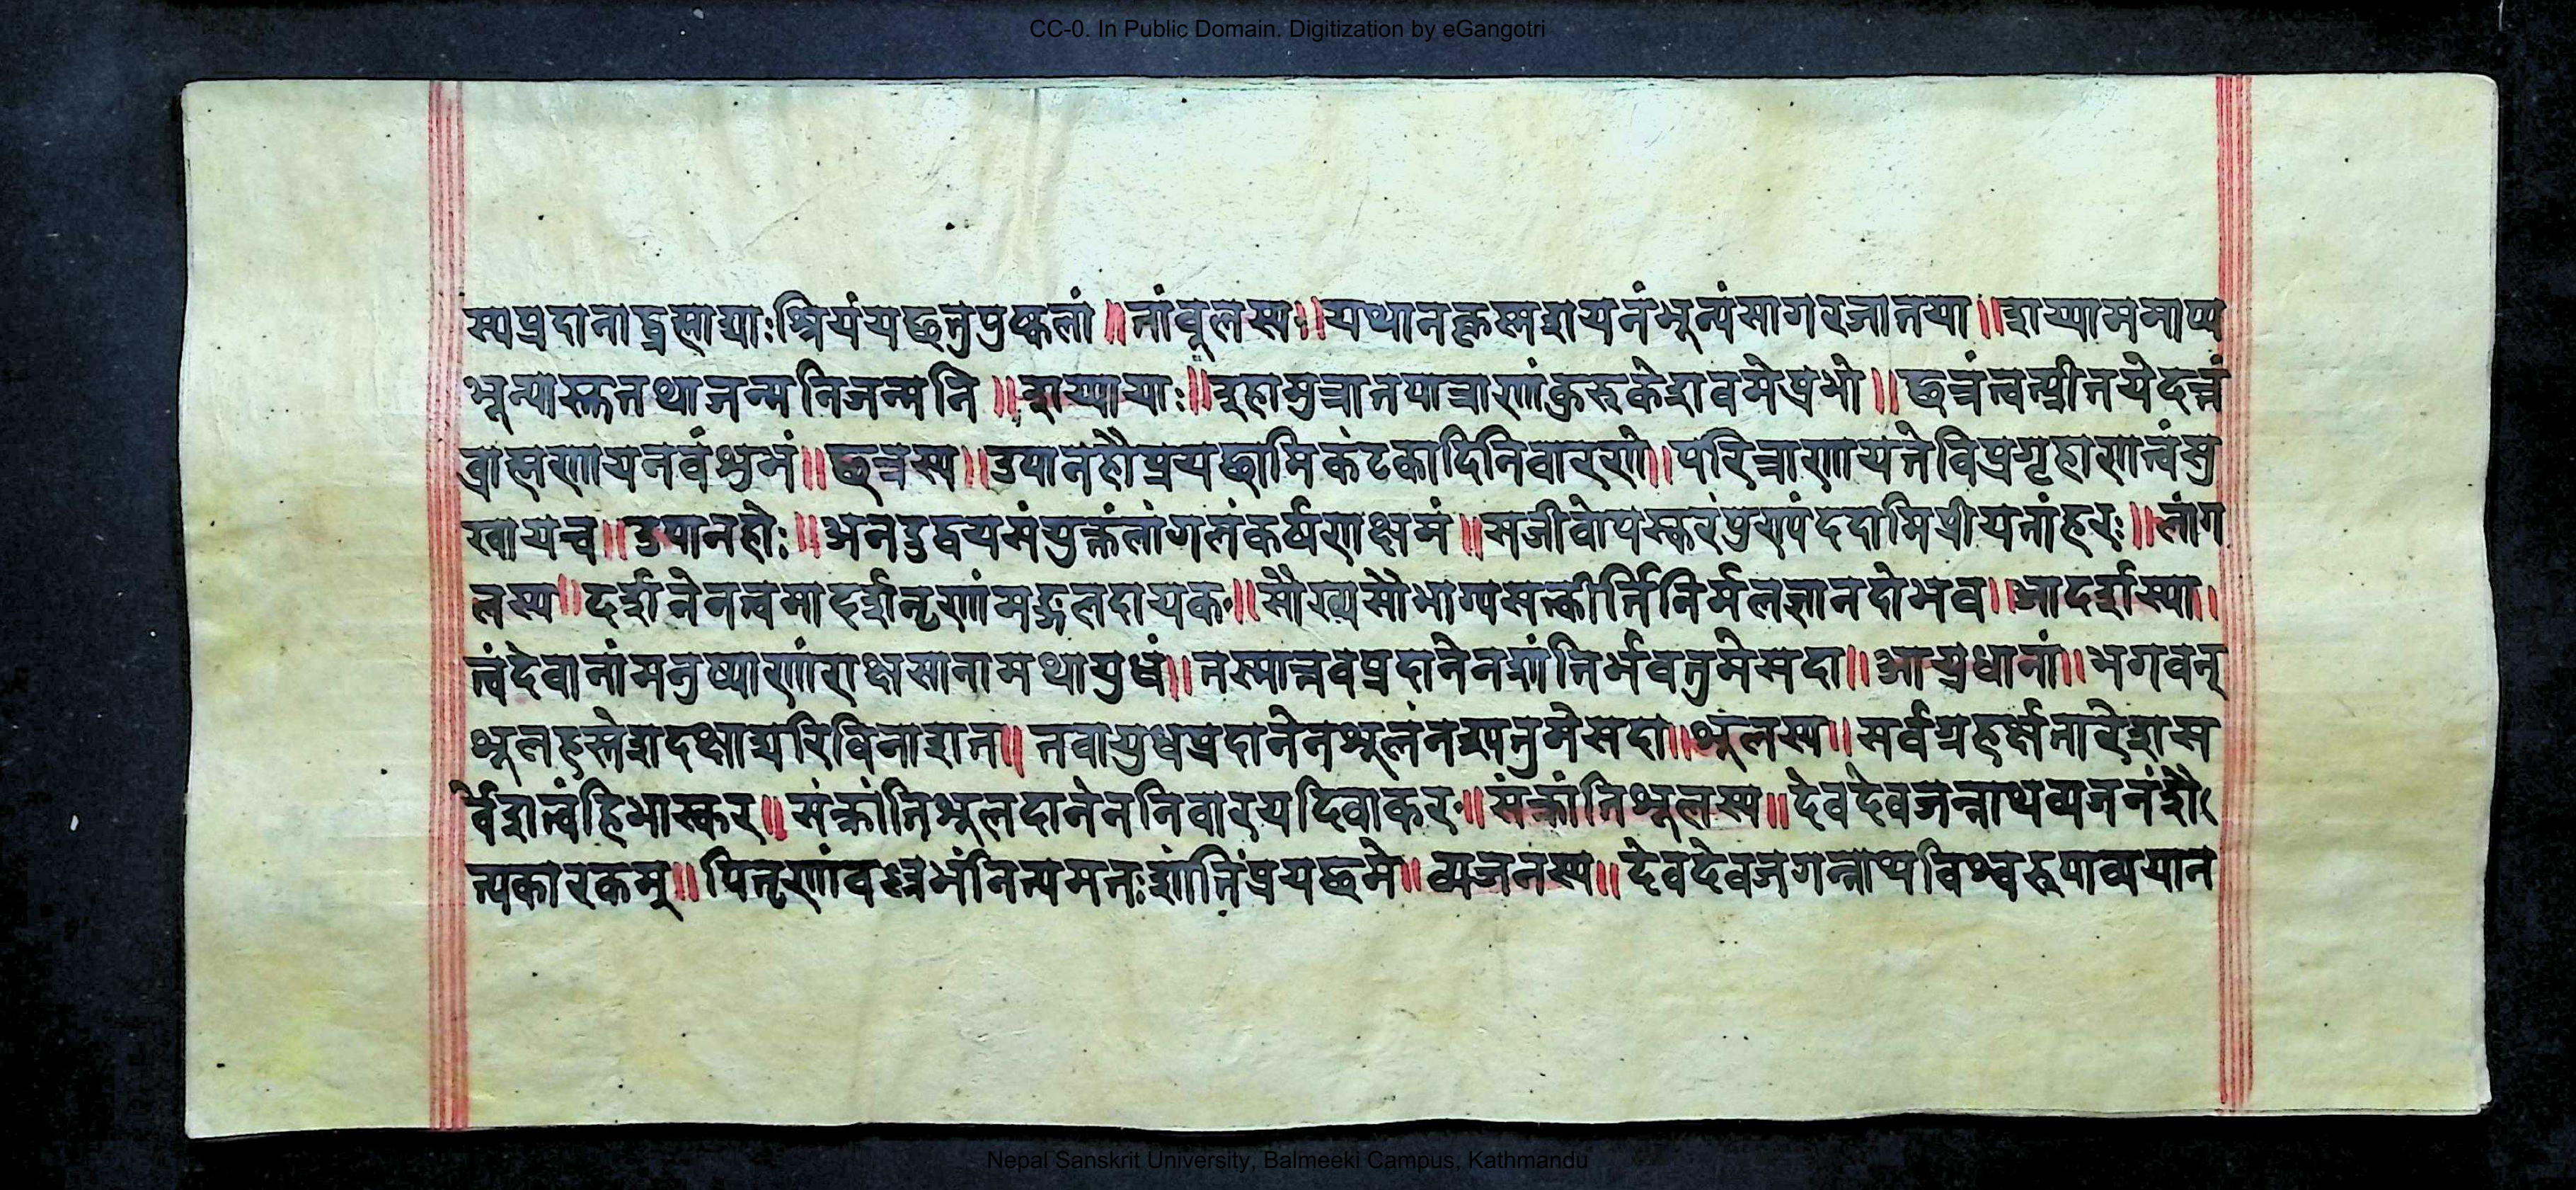 CC-0. In Public Domain. Digitization by eGangotri
स्यप्रदानाद्ब्रह्माद्याःश्रियंयछतुपुष्कलां॥तांबूलस्य॥यथानकृष्णशयनंशून्यंसागरजातया॥शय्याममाप्य
शून्यास्तुतथाजन्मनिजन्मनि॥शय्यायाः॥इहामुत्रातपात्राणंकुरुकेशवमेप्रभो॥छत्रंत्वत्प्रीतयेदत्तं
ब्राह्मणायनवंशुभं॥छत्रस्य॥उपानहौप्रयछामिकंटकादिनिवारणे॥परित्राणायतेविप्रगृहाणत्वंसु
खायच॥उपानहोः॥अनडुद्वयसंयुक्तंलांगलंकर्षणक्षमं॥सजीवोपस्करंपुण्यंददामिप्रीयतांहरः॥लांग
लस्य॥दर्शनेनत्वमादर्शनृणांमङ्गलदायक॥सौख्यसौभाग्यसत्कीर्त्तिनिर्मलज्ञानदोभव॥आदर्शस्या॥
त्वंदेवानांमनुष्याणांराक्षसानामथायुधं॥तस्मात्तवप्रदानेनशांतिर्भवतुमेसदा॥आयुधानां॥भगवन्
शूलहस्तेशदक्षाद्यरिविनाशन॥तवायुधप्रदानेनशूलंनश्यतुमेसदा॥शूलस्य॥सर्वग्रहर्क्षतारेशस
र्वेशत्वंहिभास्कर॥संक्रांतिशूलदानेननिवारयदिवाकर॥संक्रांतिशूलस्य॥देवदेवजन्नाथव्यजनंशै
त्यकारकम्॥पितृणांवल्लभंनित्यमतःशांतिंप्रयछमे॥व्यजनस्य॥देवदेवजगन्नाथविश्वरूपाव्ययान
Nepal Sanskrit University, Balmeeki Campus, Kathmandu